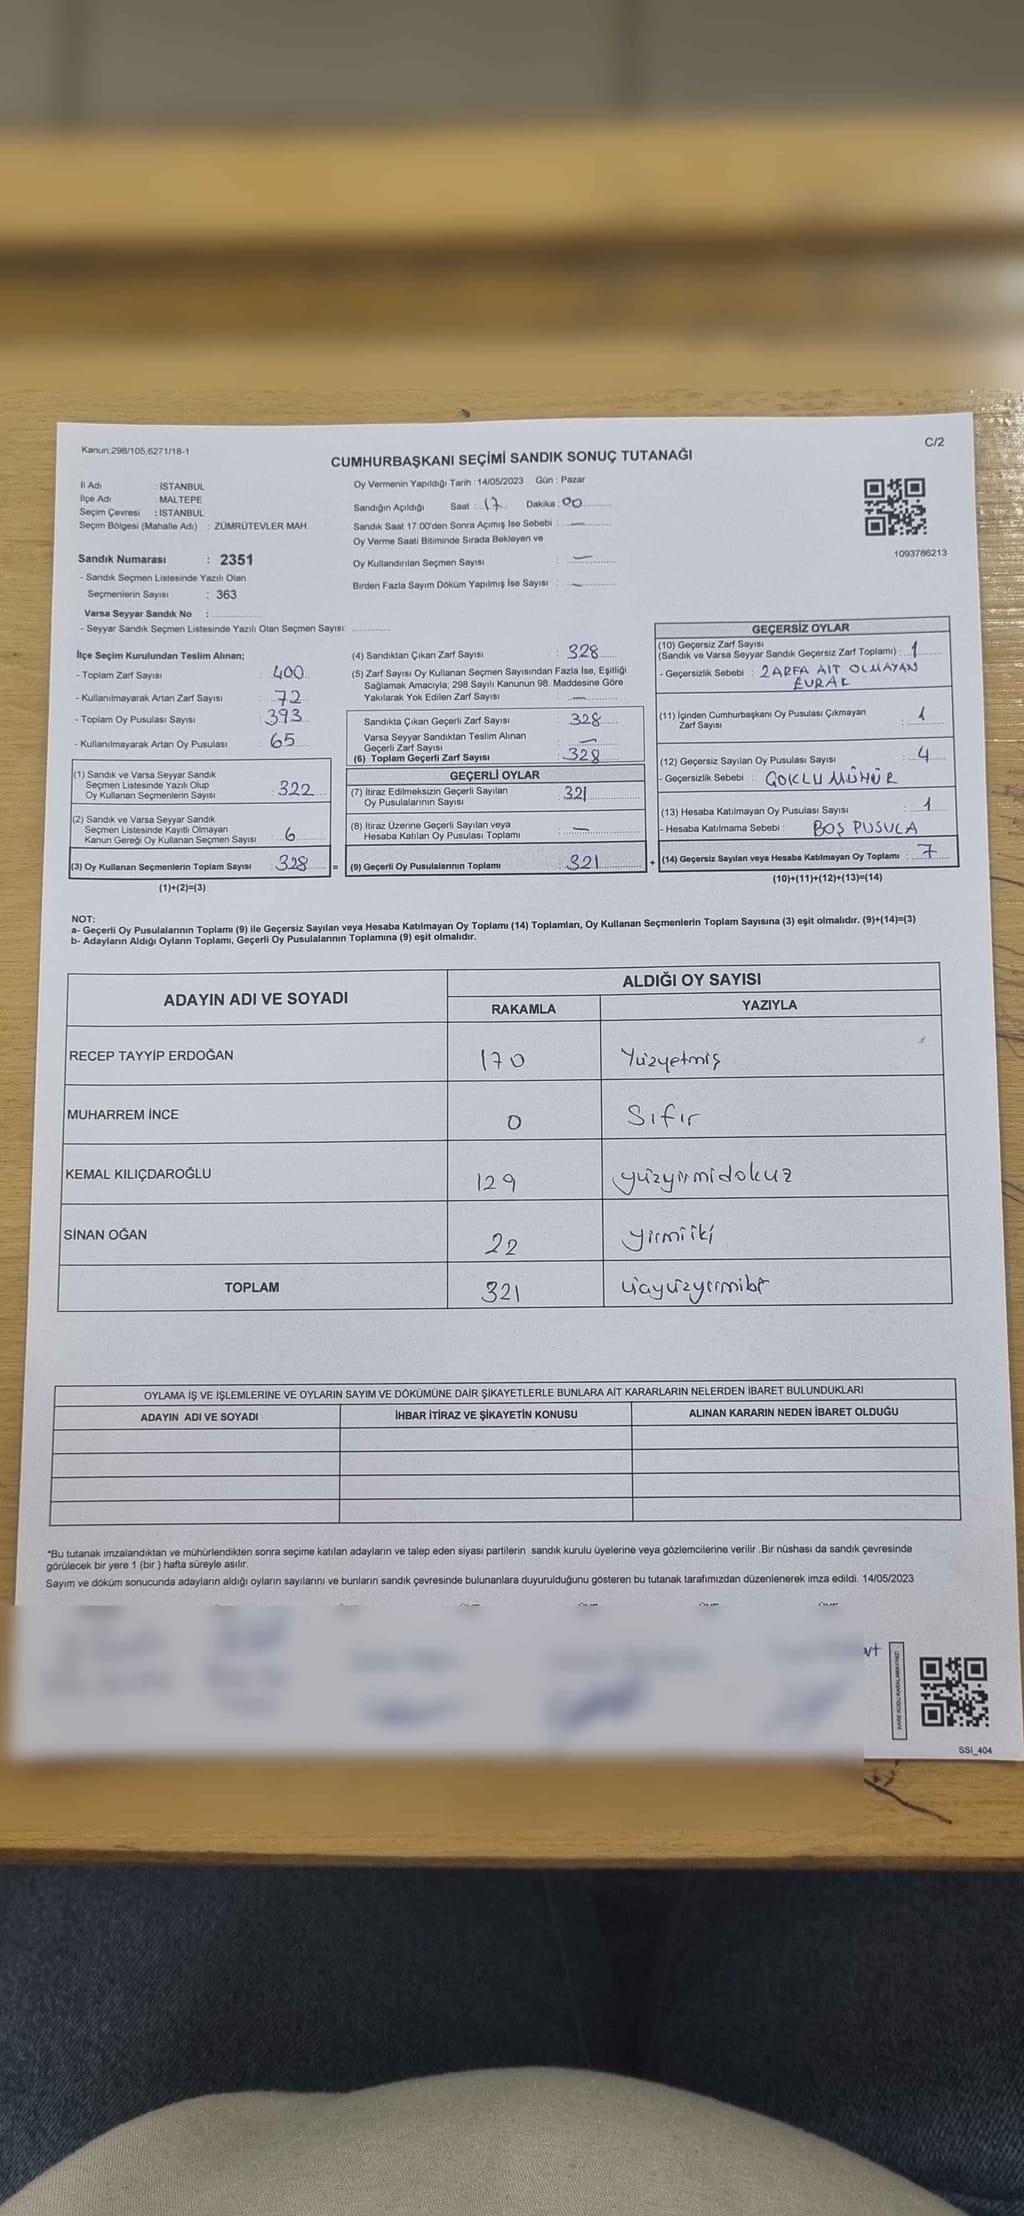 Kanun.298/105,6271/18-1
C/2
CUMHURBAŞKANI SEÇİMİ SANDIK SONUÇ TUTANAĞI
İl Adı : İSTANBUL
İlçe Adı : MALTEPE
Seçim Çevresi : İSTANBUL
Seçim Bölgesi (Mahalle Adı) : ZÜMRÜTEVLER MAH.
Oy Vermenin Yapıldığı Tarih : 14/05/2023 Gün : Pazar
Sandığın Açıldığı Saat : 17 Dakika : 00
Sandık Saat 17:00'den Sonra Açılmış İse Sebebi : —
Oy Verme Saati Bitiminde Sırada Bekleyen ve
Oy Kullandırılan Seçmen Sayısı : —
Birden Fazla Sayım Döküm Yapılmış İse Sayısı : —
1093786213
Sandık Numarası : 2351
- Sandık Seçmen Listesinde Yazılı Olan
Seçmenlerin Sayısı : 363
Varsa Seyyar Sandık No :
- Seyyar Sandık Seçmen Listesinde Yazılı Olan Seçmen Sayısı:
İlçe Seçim Kurulundan Teslim Alınan;
- Toplam Zarf Sayısı : 400
- Kullanılmayarak Artan Zarf Sayısı : 72
- Toplam Oy Pusulası Sayısı : 393
- Kullanılmayarak Artan Oy Pusulası : 65
(1) Sandık ve Varsa Seyyar Sandık
Seçmen Listesinde Yazılı Olup
Oy Kullanan Seçmenlerin Sayısı : 322
(2) Sandık ve Varsa Seyyar Sandık
Seçmen Listesinde Kayıtlı Olmayan
Kanun Gereği Oy Kullanan Seçmen Sayısı : 6
(3) Oy Kullanan Seçmenlerin Toplam Sayısı : 328 =
(1)+(2)=(3)
(4) Sandıktan Çıkan Zarf Sayısı : 328
(5) Zarf Sayısı Oy Kullanan Seçmen Sayısından Fazla İse, Eşitliği
Sağlamak Amacıyla; 298 Sayılı Kanunun 98. Maddesine Göre
Yakılarak Yok Edilen Zarf Sayısı : —
Sandıkta Çıkan Geçerli Zarf Sayısı : 328
Varsa Seyyar Sandıktan Teslim Alınan
Geçerli Zarf Sayısı : —
(6) Toplam Geçerli Zarf Sayısı : 328
GEÇERLİ OYLAR
(7) İtiraz Edilmeksizin Geçerli Sayılan
Oy Pusulalarının Sayısı : 321
(8) İtiraz Üzerine Geçerli Sayılan veya
Hesaba Katılan Oy Pusulası Toplamı : —
(9) Geçerli Oy Pusulalarının Toplamı : 321 +
GEÇERSİZ OYLAR
(10) Geçersiz Zarf Sayısı
(Sandık ve Varsa Seyyar Sandık Geçersiz Zarf Toplamı) : 1
- Geçersizlik Sebebi : ZARFA AİT OLMAYAN
EVRAK
(11) İçinden Cumhurbaşkanı Oy Pusulası Çıkmayan
Zarf Sayısı : 1
(12) Geçersiz Sayılan Oy Pusulası Sayısı : 4
- Geçersizlik Sebebi : ÇOKLU MÜHÜR
(13) Hesaba Katılmayan Oy Pusulası Sayısı : 1
- Hesaba Katılmama Sebebi : BOŞ PUSULA
(14) Geçersiz Sayılan veya Hesaba Katılmayan Oy Toplamı : 7
(10)+(11)+(12)+(13)=(14)
NOT:
a- Geçerli Oy Pusulalarının Toplamı (9) ile Geçersiz Sayılan veya Hesaba Katılmayan Oy Toplamı (14) Toplamları, Oy Kullanan Seçmenlerin Toplam Sayısına (3) eşit olmalıdır. (9)+(14)=(3)
b- Adayların Aldığı Oyların Toplamı, Geçerli Oy Pusulalarının Toplamına (9) eşit olmalıdır.
ADAYIN ADI VE SOYADI ALDIĞI OY SAYISI
RAKAMLA YAZIYLA
RECEP TAYYİP ERDOĞAN 170 Yüzyetmiş
MUHARREM İNCE 0 Sıfır
KEMAL KILIÇDAROĞLU 129 yüzyirmidokuz
SİNAN OĞAN 22 yirmiiki
TOPLAM 321 üçyüzyirmibir
OYLAMA İŞ VE İŞLEMLERİNE VE OYLARIN SAYIM VE DÖKÜMÜNE DAİR ŞİKAYETLERLE BUNLARA AİT KARARLARIN NELERDEN İBARET BULUNDUKLARI
ADAYIN ADI VE SOYADI İHBAR İTİRAZ VE ŞİKAYETİN KONUSU ALINAN KARARIN NEDEN İBARET OLDUĞU
*Bu tutanak imzalandıktan ve mühürlendikten sonra seçime katılan adayların ve talep eden siyasi partilerin sandık kurulu üyelerine veya gözlemcilerine verilir .Bir nüshası da sandık çevresinde
görülecek bir yere 1 (bir ) hafta süreyle asılır.
Sayım ve döküm sonucunda adayların aldığı oyların sayılarını ve bunların sandık çevresinde bulunanlara duyurulduğunu gösteren bu tutanak tarafımızdan düzenlenerek imza edildi. 14/05/2023
KARE KODU KARALAMAYINIZ!
SSI_404